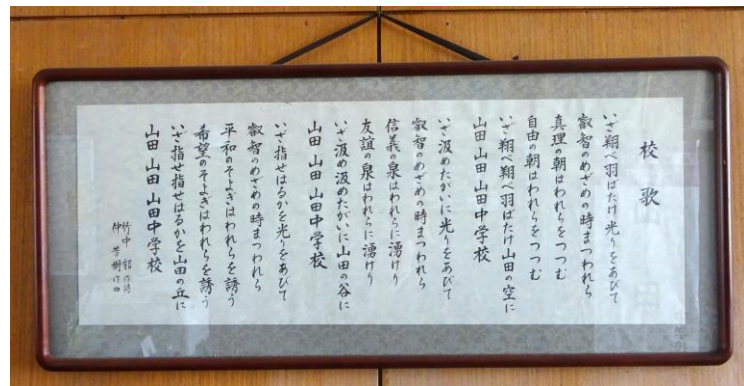 校歌
いざ翔べ羽ばたけ光りをあびて
叡智のめざめの時まつわれら
真理の朝はわれらをつつむ
自由の朝はわれらをつつむ
いざ翔べ翔べ羽ばたけ山田の空に
山田 山田 山田中学校
いざ汲めたがいに光りをあびて
叡智のめざめの時まつわれら
信義の泉はわれらに湧けり
友誼の泉はわれらに湧けり
いざ汲め汲めたがいに山田の谷に
山田 山田 山田中学校
いざ指せはるかを光りをあびて
叡智のめざめの時まつわれら
平和のそよぎはわれらを誘う
希望のそよぎはわれらを誘う
いざ指せ指せはるかを山田の丘に
山田 山田 山田中学校
竹中 郁 作詩
仲 芳樹 作曲